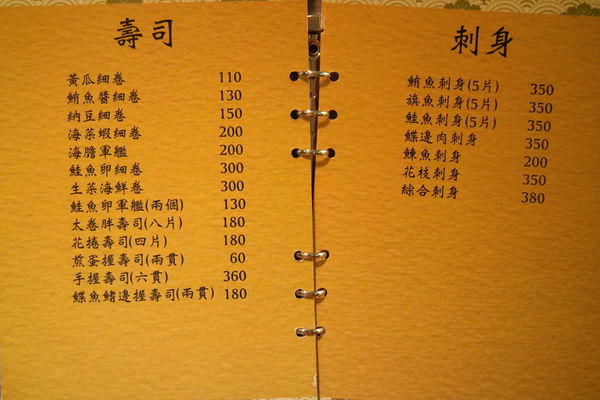 壽司
黃瓜細卷 110
鮪魚醬細卷 130
納豆細卷 150
海菜蝦細卷 200
海膽軍艦 200
鮭魚卵細卷 300
生菜海鮮卷 300
鮭魚卵軍艦(兩個) 130
太卷胖壽司(八片) 180
花捲壽司(四片) 180
煎蛋握壽司(兩貫) 60
手握壽司(六貫) 360
鰈魚鰭邊握壽司(兩貫) 180
刺身
鮪魚刺身(5片) 350
旗魚刺身(5片) 350
鮭魚刺身(5片) 350
鰈邊肉刺身 350
鰊魚刺身 200
花枝刺身 350
綜合刺身 380